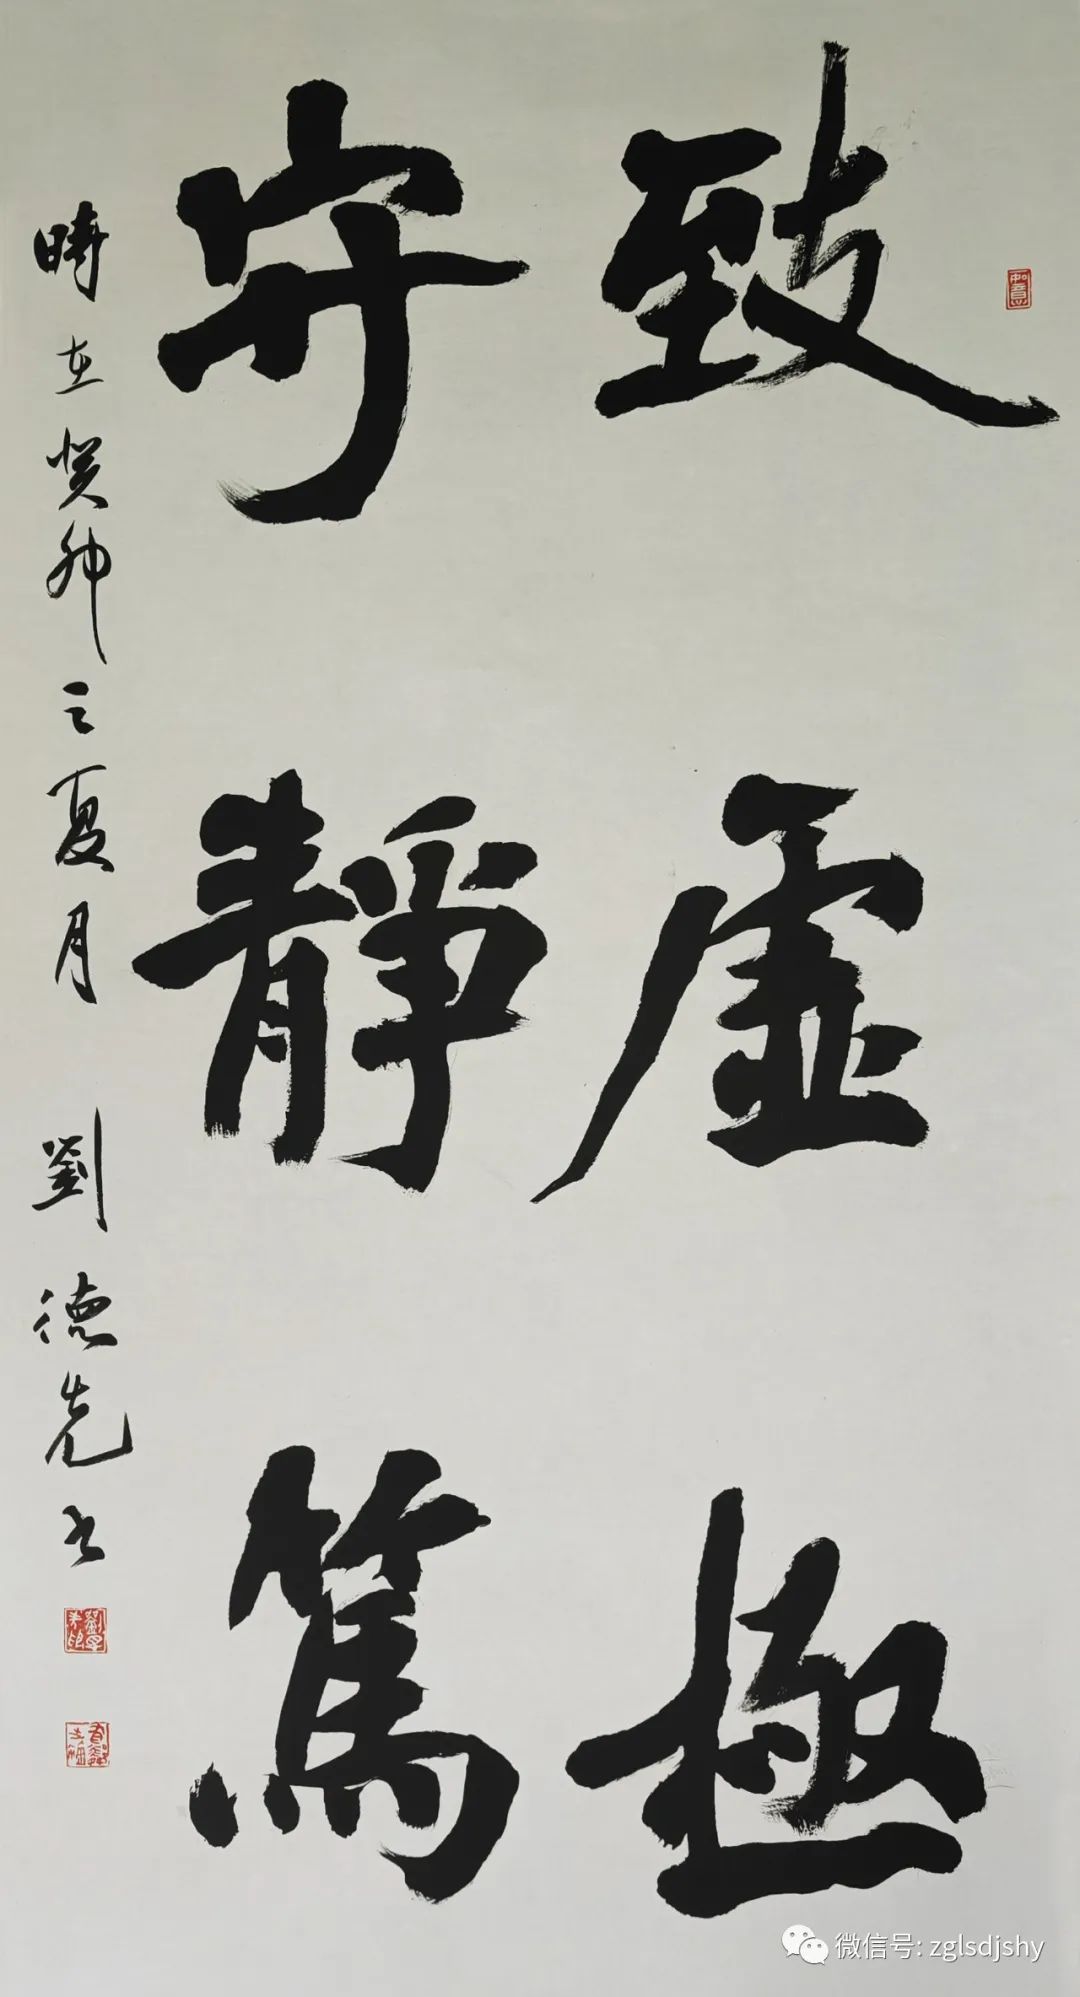 致虛極
守靜篤
時在癸卯之夏月 劉德先書
微信号: zglsdjshy